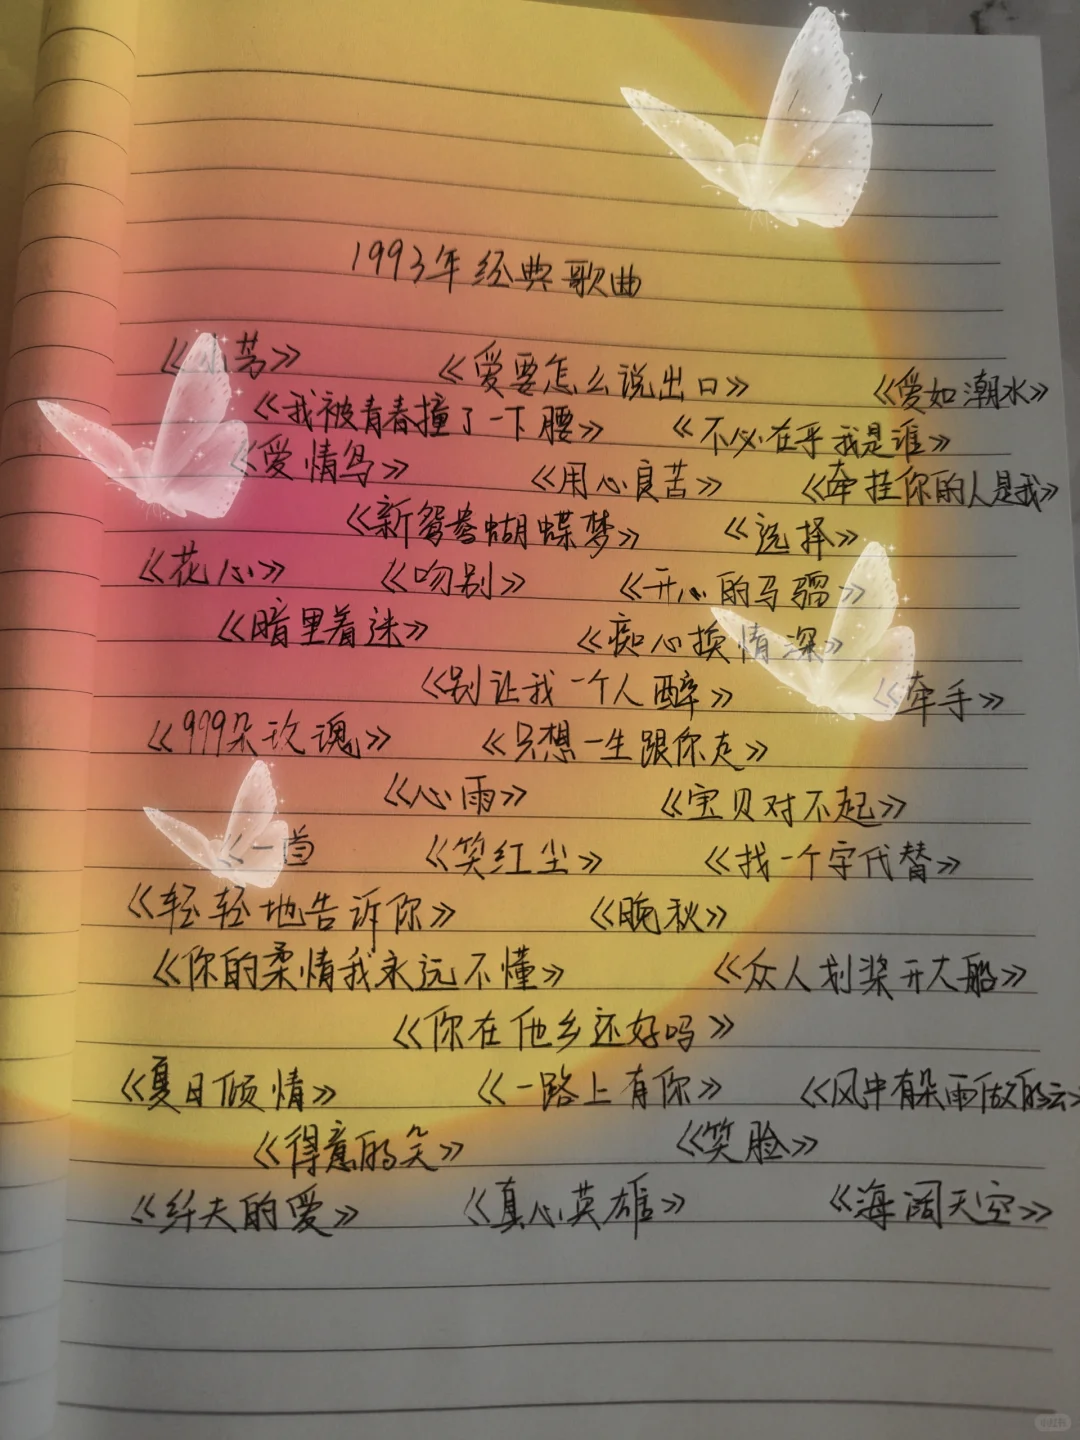 1993年经典歌曲
《小芳》 《爱要怎么说出口》 《爱如潮水》
《我被青春撞了一下腰》 《不必在乎我是谁》
《爱情鸟》 《用心良苦》 《牵挂你的人是我》
《新鸳鸯蝴蝶梦》 《选择》
《花心》 《吻别》 《开心的马骝》
《暗里着迷》 《痴心换情深》
《别让我一个人醉》 《牵手》
《999朵玫瑰》 《只想一生跟你走》
《心雨》 《宝贝对不起》
《一首 《笑红尘》 《找一个字代替》
《轻轻地告诉你》 《晚秋》
《你的柔情我永远不懂》 《众人划桨开大船》
《你在他乡还好吗》
《夏日倾情》 《一路上有你》 《风中有朵雨做的云》
《得意的笑》 《笑脸》
《纤夫的爱》 《真心英雄》 《海阔天空》
小红书